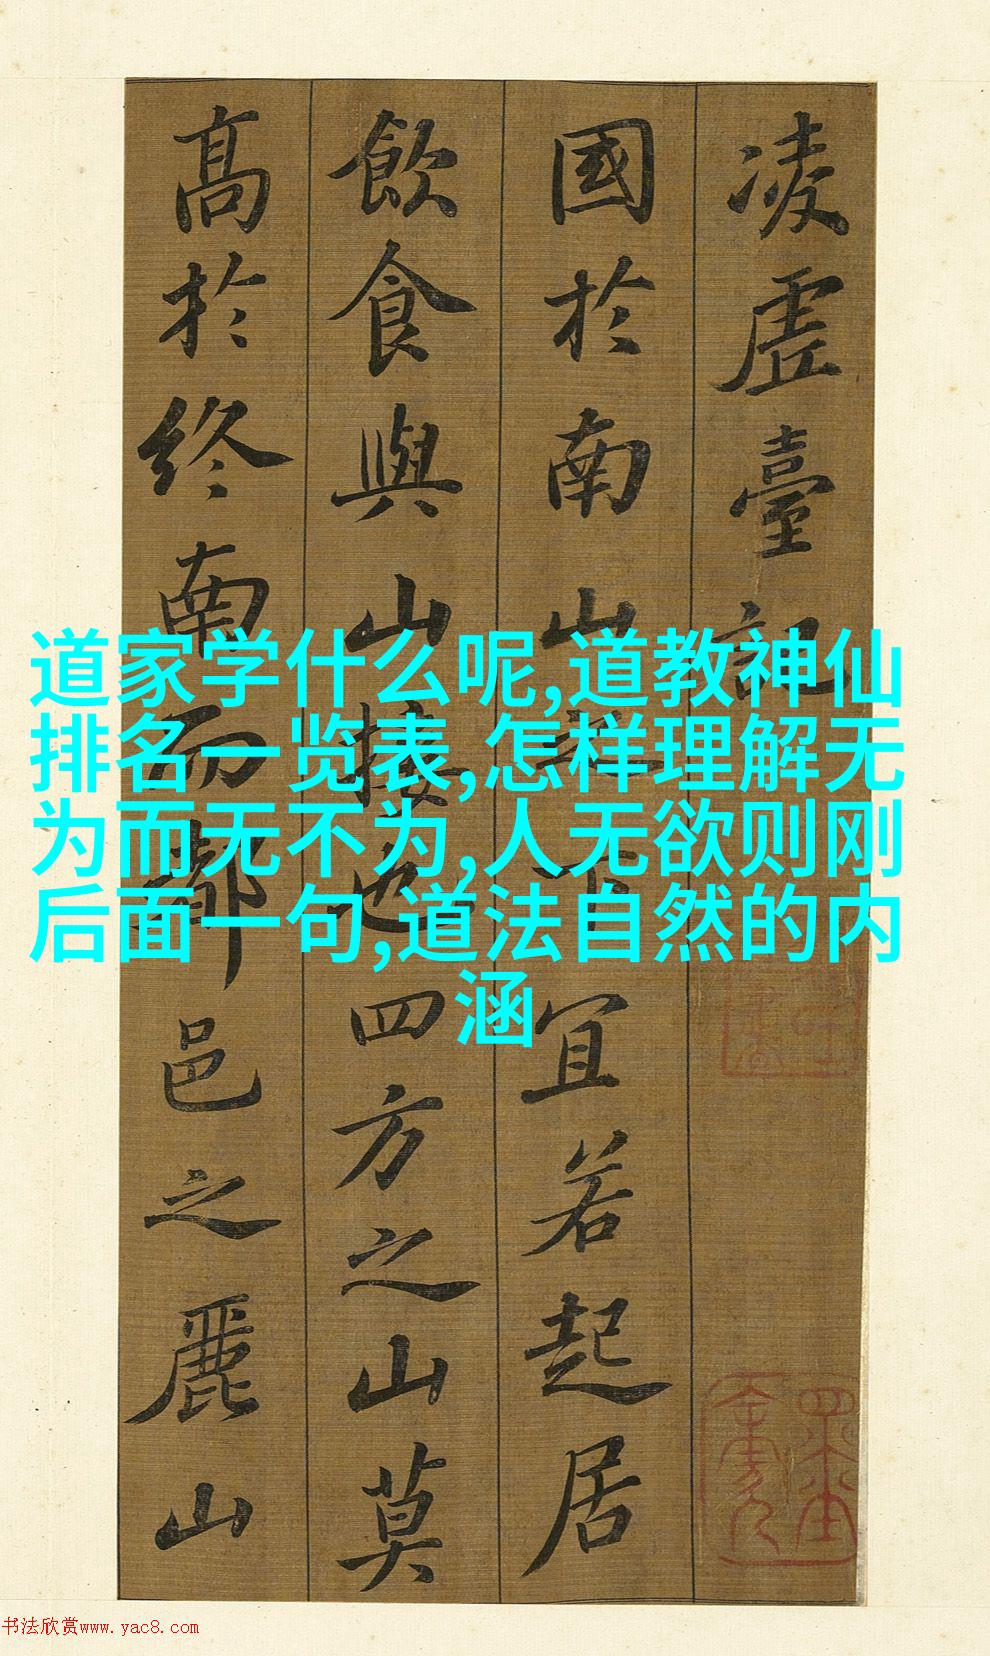 凌虛臺記
國於南山之下宜若起居
飲食與山接也四方之山莫
高於終南而都邑之麗山
道家学什么呢,道教神仙
排名一览表,怎样理解无
为而无不为,人无欲则刚
后面一句,道法自然的内
涵
书法欣赏www.yac8.com